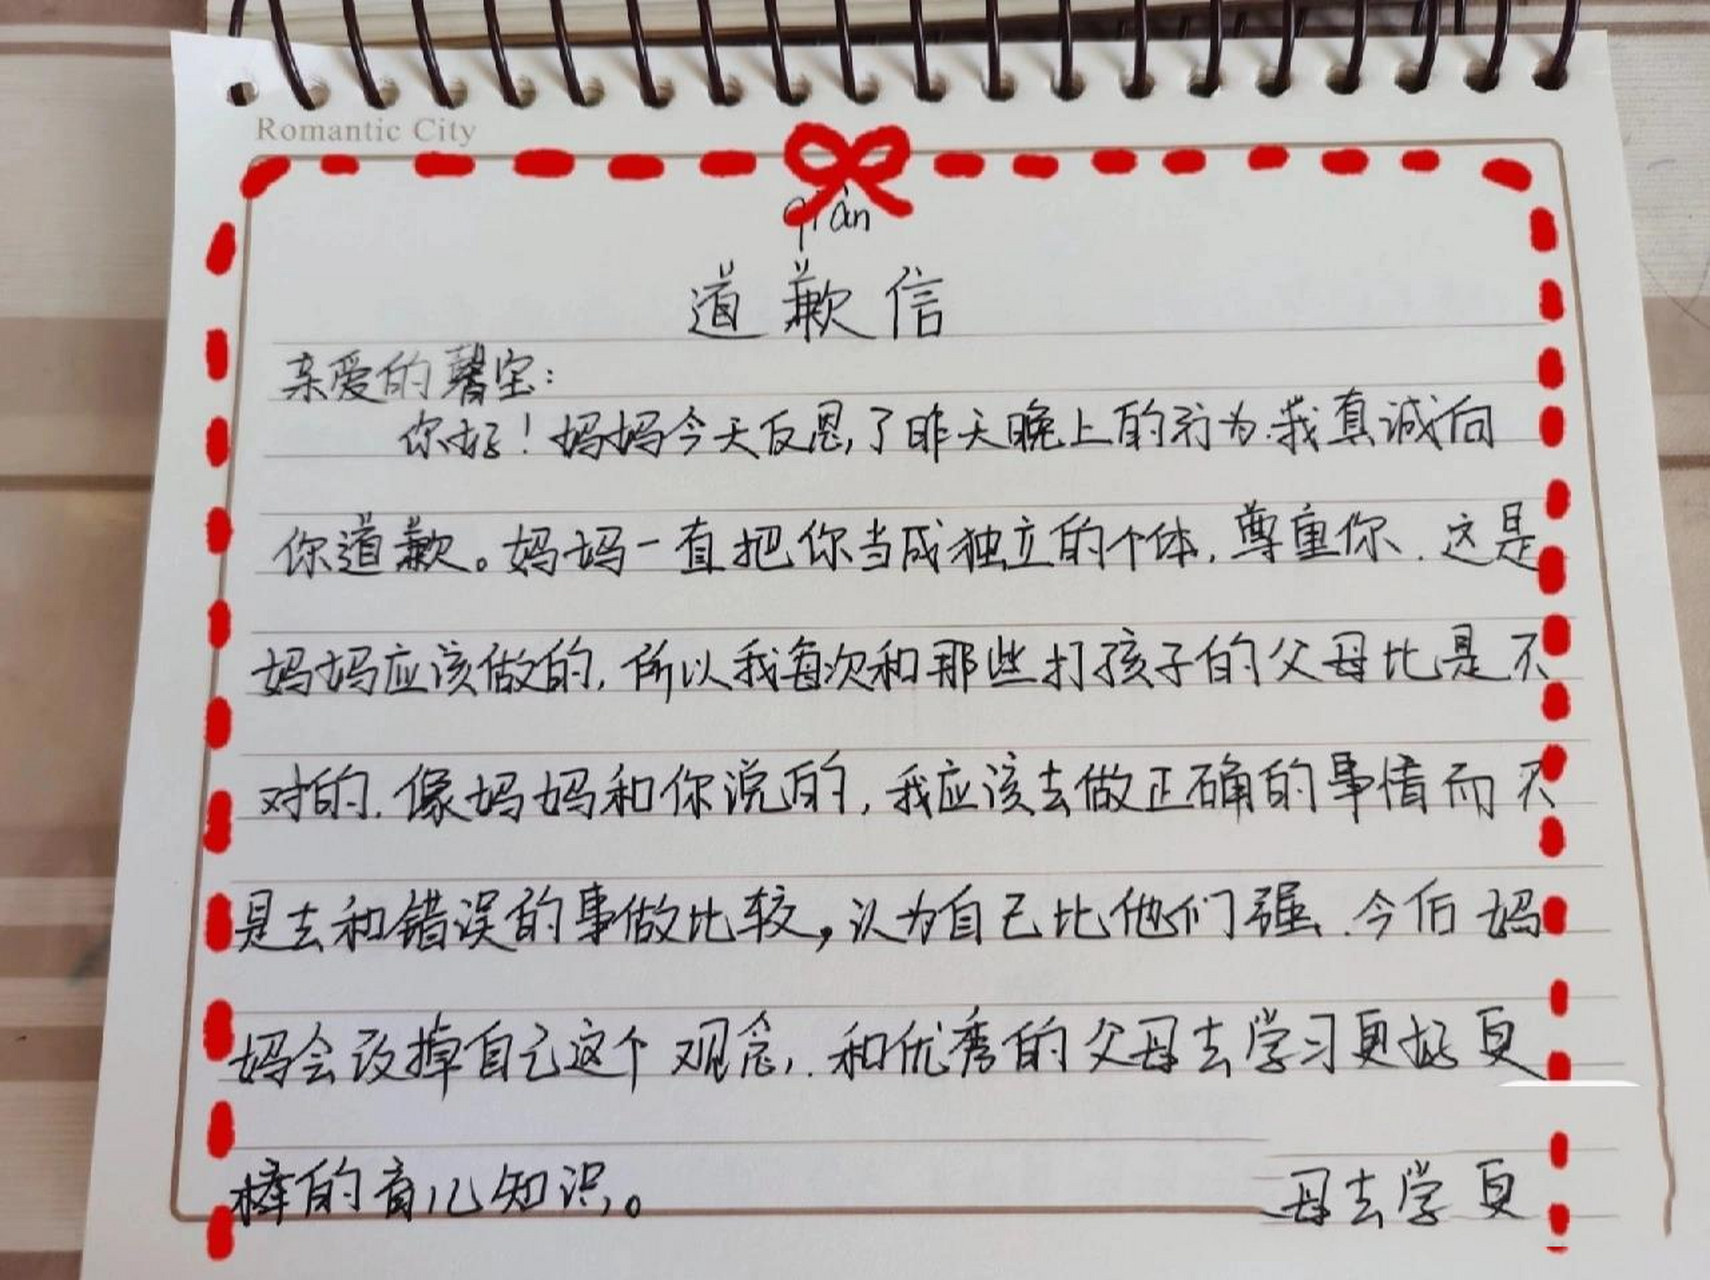 Romantic City
qiàn
道歉信
亲爱的馨宝:
你好!妈妈今天反思了昨天晚上的行为.我真诚向
你道歉。妈妈一直把你当成独立的个体,尊重你.这是
妈妈应该做的,所以我每次和那些打孩子的父母比是不
对的.像妈妈和你说的,我应该去做正确的事情而不
是去和错误的事做比较,认为自己比他们强.今后妈
妈会改掉自己这个观念,.和优秀的父母去学习更好更
棒的育儿知识。
母去学更